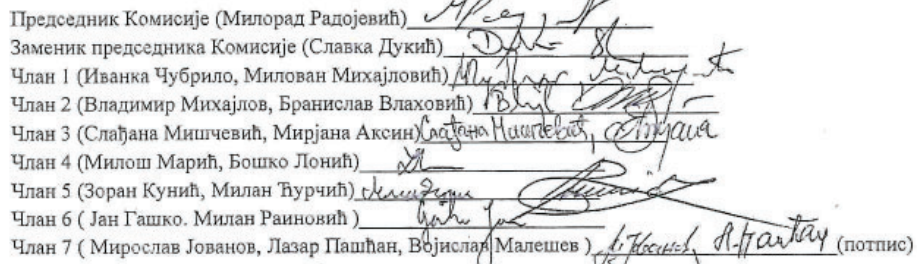 Председник Комисије (Милорад Радојевић)
Заменик председника Комисије (Славка Дукић)
Члан 1 (Иванка Чубрило, Милован Михајловић)
Члан 2 (Владимир Михајлов, Бранислав Влаховић)
Члан 3 (Слађана Мишчевић, Мирјана Аксин) Слађана Мишчевић,
Члан 4 (Милош Марић, Бошко Лонић)
Члан 5 (Зоран Кунић, Милан Ћурчић)
Члан 6 ( Јан Гашко. Милан Раиновић )
Члан 7 ( Мирослав Јованов, Лазар Пашћан, Војислав Малешев ) (потпис)